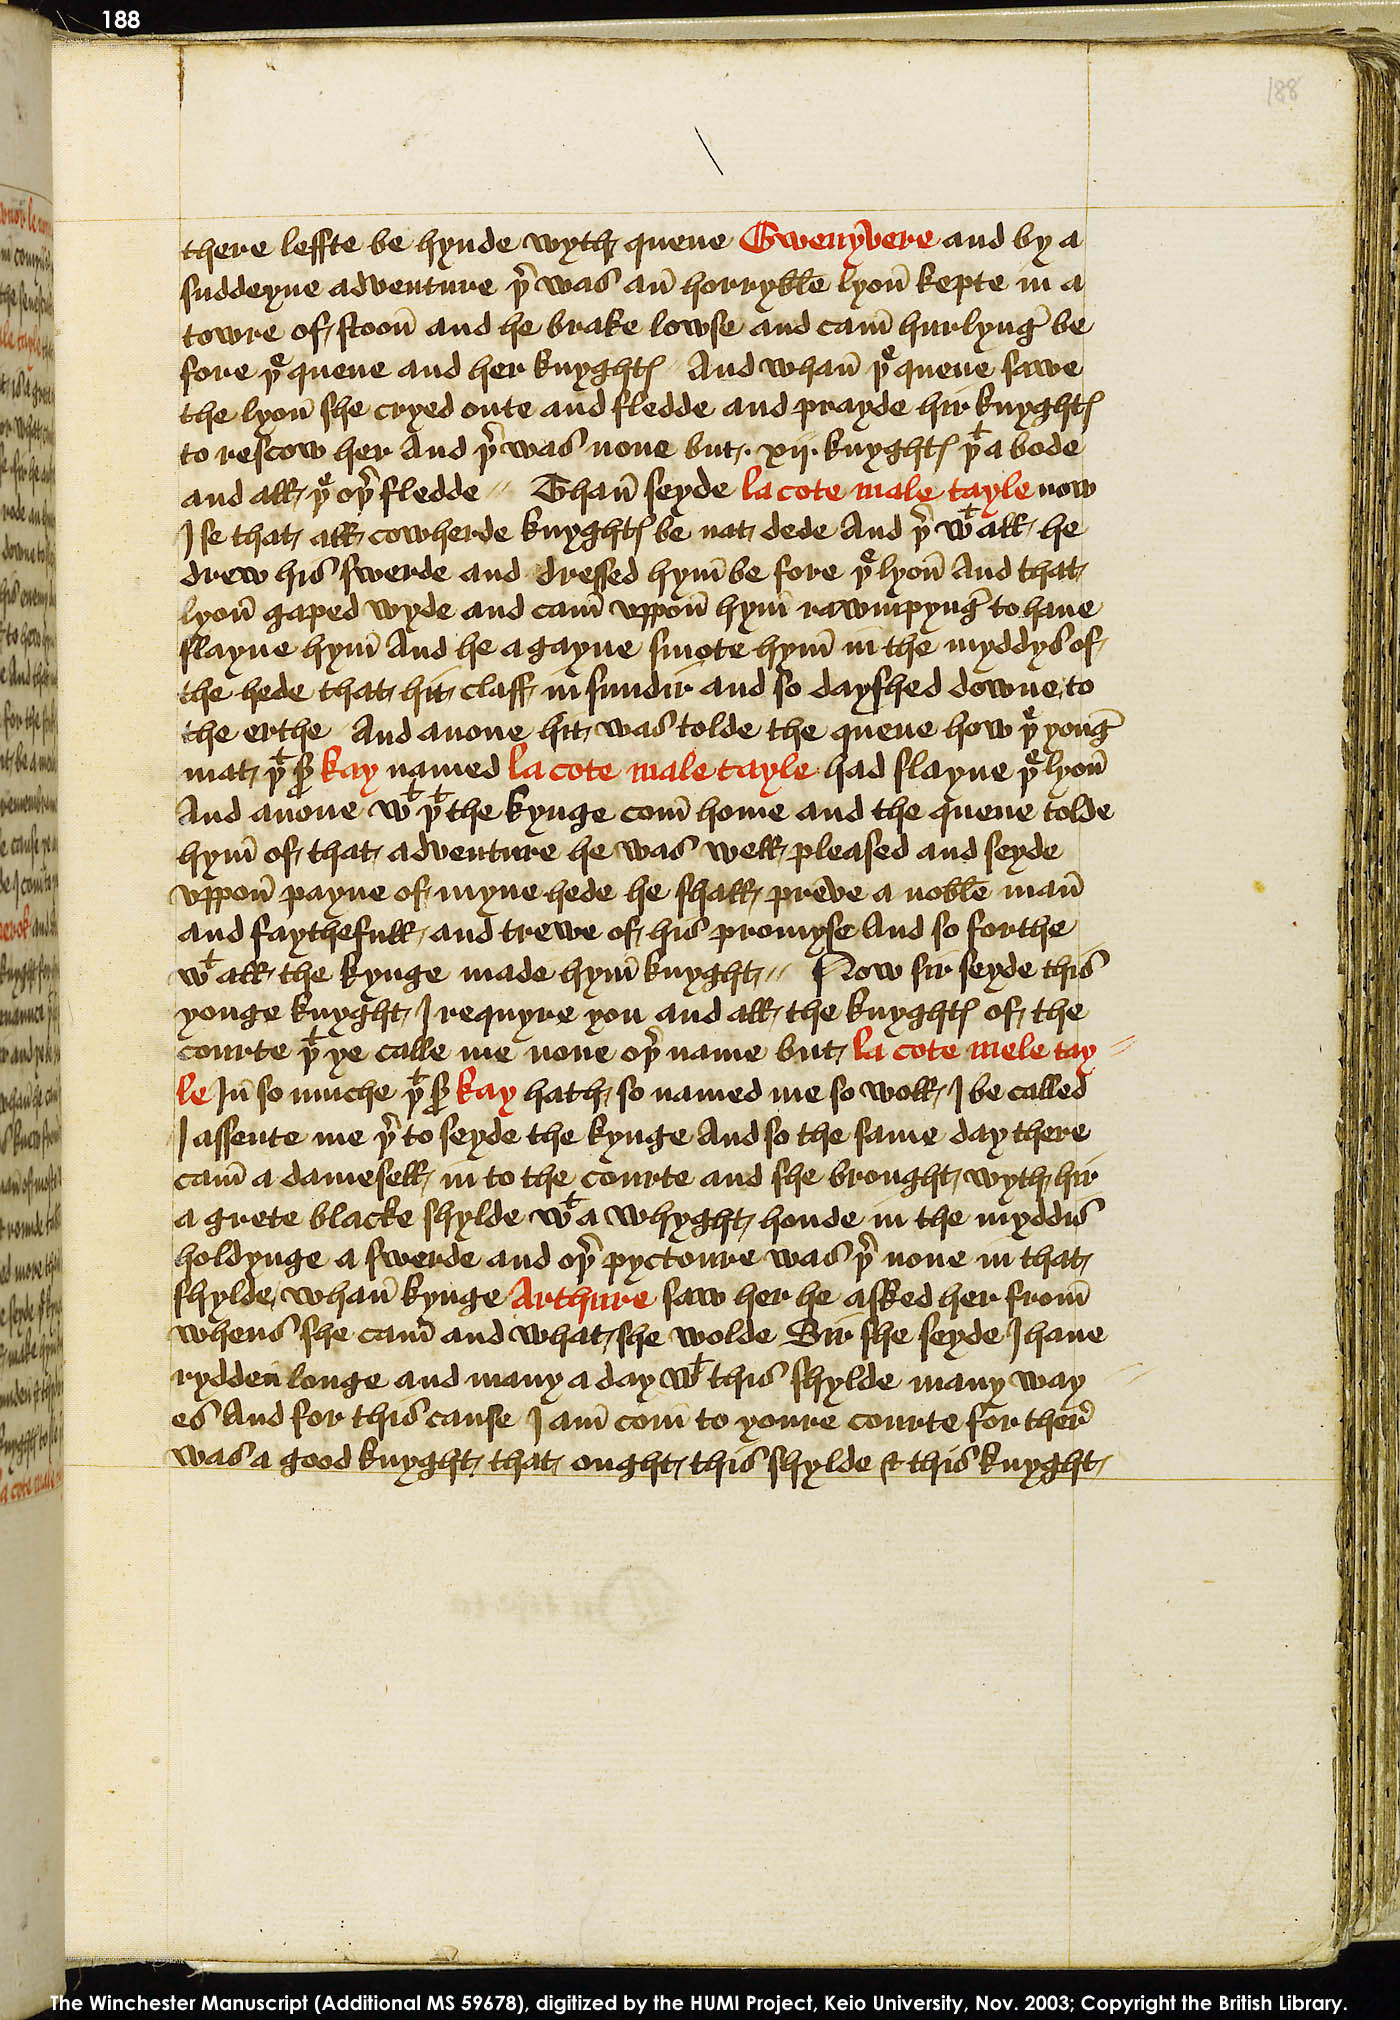 188
188
there leffte be hynde wyth quene Gwenyvere and by a
suddeyne adventure þr̄ was an̄ horryble lyon̄ kepte in a
towre of stoon̄ and he brake lowse and cam̄ hurlynḡ be
fore þe quene and her knyghtꝭ // And whan̄ þe quene sawe
the lyon̄ she cryed oute and fledde and prayde hir knyghtꝭ
to rescow her And þr̄ was none but · xij · knyghtꝭ þt a bode
and all þe oþr̄ fledde // Than̄ seyde la cote male tayle now
I se that all cowherde knyghtꝭ be nat dede And þr̄ wt all he
drew his swerde and dressed hym̄ be fore þe lyon̄ And that
lyon̄ gaped wyde and cam̄ uppon̄ hym̄ rawmpynḡ to haue
slayne hym̄ And he a gayne smote hym̄ in the myddys of
the hede that hit claff in sundir and so dayshed downe to
the erthe And anone hit was tolde the quene how þe yonḡ
mat þt sr̄ kay named la cote male tayle had slayne þe lyon̄
And anone wt þt the kynge com̄ home and the quene tolde
hym̄ of that adventure he was well pleased and seyde
uppon̄ payne of myne hede he shall preve a noble man̄
and faythefull and trewe of his promyse And so forthe
wt all the kynge made hym̄ knyght // Now sir seyde this
yonge knyght I requyre you and all the knyghtꝭ of the
courte þt ye calle me none oþr̄ name but la cote mele tay //
le In̄ so muche þt sr̄ kay hath so named me so woll I be called
I assente me þr̄ to seyde the kynge And so the same day there
cam̄ a damesell in to the courte and she brought wyth hir
a grete blacke shylde wt a whyght honde in the myddis
holdynge a swerde and oþr̄ pyctoure was þr̄ none in that
shylde whan̄ kynge Arthure saw her he asked her from̄
whens she cam̄ and what she wolde Sir she seyde I haue
rydden longe and many a day wt this shylde many way //
es And for this cause I am̄ com̄ to youre courte for ther̄
was a good knyght that ought this shylde & this knyght
The Winchester Manuscript (Additional MS 59678), digitized by the HUMI Project, Keio University, Nov. 2003; Copyright the British Library.